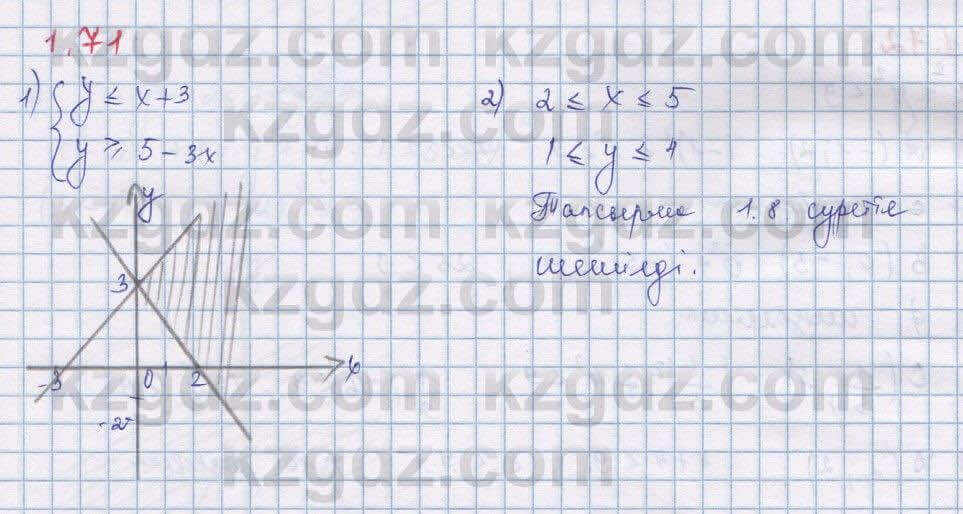 1.71
1) { y ≤ x + 3
y ≥ 5 - 3x
2) 2 ≤ x ≤ 5
1 ≤ y ≤ 4
Тапсырма 1.8 суретте
шешілді.
y
3
-3 0 2 x
-2
kzgdz.com kzgdz.com
kzgdz.com kzgdz.com
kzgdz.com kzgdz.com
kzgdz.com kzgdz.com
kzgdz.com kzgdz.com